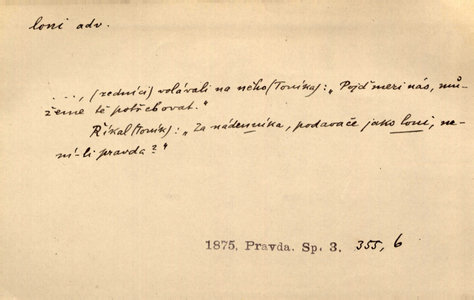 loni adv.
...., (zedníci) volávali na něho (Toníka): „Pojď mezi nás, mů-
žeme tě potřebovat."
Říkal (Toník): „Za nádenníka, podavače jako loni, ne-
ní-li pravda?"
1875. Pravda. Sp. 3. 355, 6